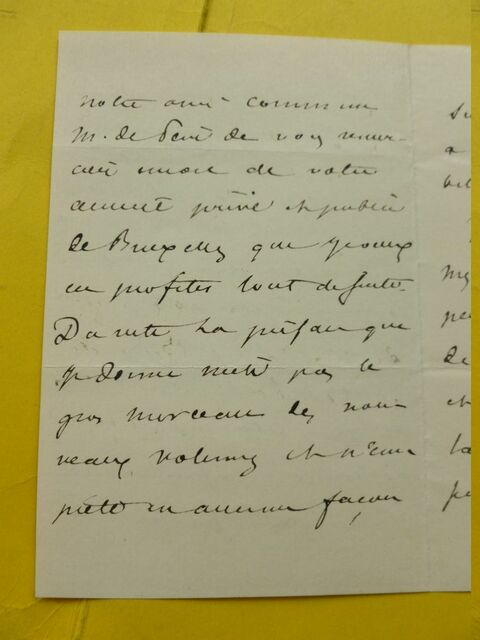 notre ami commun
M. de de vous remer-
cier encore de votre
accueil privé et public
de Bruxelles que je veux
en profiter tout de suite.
Du reste la préface que
je donne n'est pas le
gros morceau des nou-
veaux volumes et n'em
piète en aucune façon
a
my
de
et